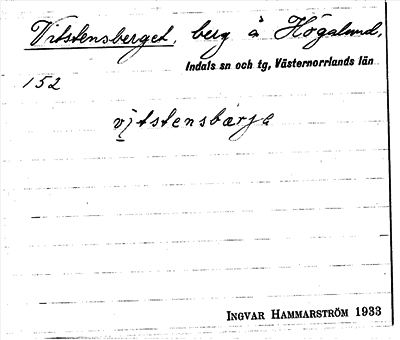 Vitstensberget, berg å Högalund,
Indals sn och tg, Västernorrlands län
152
vi̯tstensbärjɛ
INGVAR HAMMARSTRÖM 1933